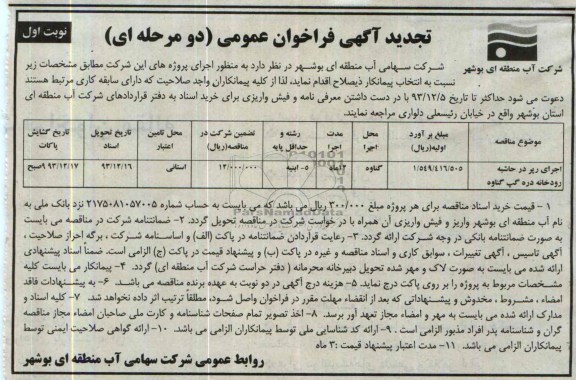 نوبت اول
تجدید آگهی فراخوان عمومی (دو مرحله ای)
شرکت آب منطقه ای بوشهر
شرکت سهامی آب منطقه ای بوشهر در نظر دارد به منظور اجرای پروژه های این شرکت مطابق مشخصات زیر
نسبت به انتخاب پیمانکار ذیصلاح اقدام نماید، لذا از کلیه پیمانکاران واجد صلاحیت که دارای سابقه کاری مرتبط هستند
دعوت می شود حداکثر تا تاریخ ۹۳/۱۲/۵ با در دست داشتن معرفی نامه و فیش واریزی برای خرید اسناد به دفتر قراردادهای شرکت آب منطقه ای
استان بوشهر واقع در خیابان رئیسعلی دلواری مراجعه نمایند.
موضوع مناقصه | مبلغ بر آورد اولیه(ریال) | محل اجرا | مدت اجرا | رشته و حداقل پایه | تضمین شرکت در مناقصه(ریال) | محل تامین اعتبار | تاریخ تحویل اسناد | تاریخ گشایش پاکات
اجرای ریر در حاشیه رودخانه دره گپ گناوه | ۱/۵۴۹/۴۱۶/۵۰۵ | گناوه | ۵- ابنیه | استانی | ۹۳/۱۲/۱۶ | ۹۳/۱۲/۱۷ ۹صبح
۱ - قیمت خرید اسناد مناقصه برای هر پروژه مبلغ ۳۰۰/۰۰۰ ریال می باشد که می بایست به حساب شماره ۲۱۷۵۰۸۱۰۵۷۰۰۵ نزد بانک ملی به
نام آب منطقه ای بوشهر واریز و فیش واریزی آن همراه با در خواست شرکت در مناقصه تحویل گردد. ۲- ضمانتنامه شرکت در مناقصه می بایست
به صورت ضمانتنامه بانکی در وجه شرکت ارائه گردد. ۳- رعایت قراردادن ضمانتنامه در پاکت (الف) و اساسنامه شرکت ، برگه احراز صلاحیت ،
آگهی تاسیس ، آگهی تغییرات ، سوابق کاری و اسناد مناقصه و غیره در پاکت (ب) و پیشنهاد قیمت در پاکت (ج) الزامی است. ضمناً اسناد پیشنهادی
ارائه شده می بایست به صورت لاک و مهر شده تحویل دبیرخانه محرمانه ( دفتر حراست شرکت آب منطقه ای) گردد. ۴- پیمانکار می بایست کلیه
مشخصات مربوط به پروژه را بر روی پاکت درج نماید. ۵- هزینه درج آگهی در دو نوبت به عهده برنده مناقصه می باشد. ۶- به پیشنهادات فاقد
امضاء ، مشروط ، مخدوش و پیشنهاداتی که بعد از انقضاء مهلت مقرر در فراخوان واصل شود، مطلقاً ترتیب اثر داده نخواهد شد. ۷- کلیه اسناد و
مدارک ارائه شده می بایست به مهر و امضاء مجاز تعهد آور برسد. ۸- اخذ تصویر تمام صفحات شناسنامه و کارت ملی صاحبان امضاء مجاز مناقصه
گران و شناسنامه پدر افراد مذبور الزامی است . ۹- ارائه کد شناسایی ملی توسط پیمانکاران الزامی می باشد. ۱۰- ارائه گواهی صلاحیت ایمنی توسط
پیمانکاران الزامی می باشد. ۱۱- مدت اعتبار پیشنهاد قیمت :۳ ماه
روابط عمومی شرکت سهامی آب منطقه ای بوشهر